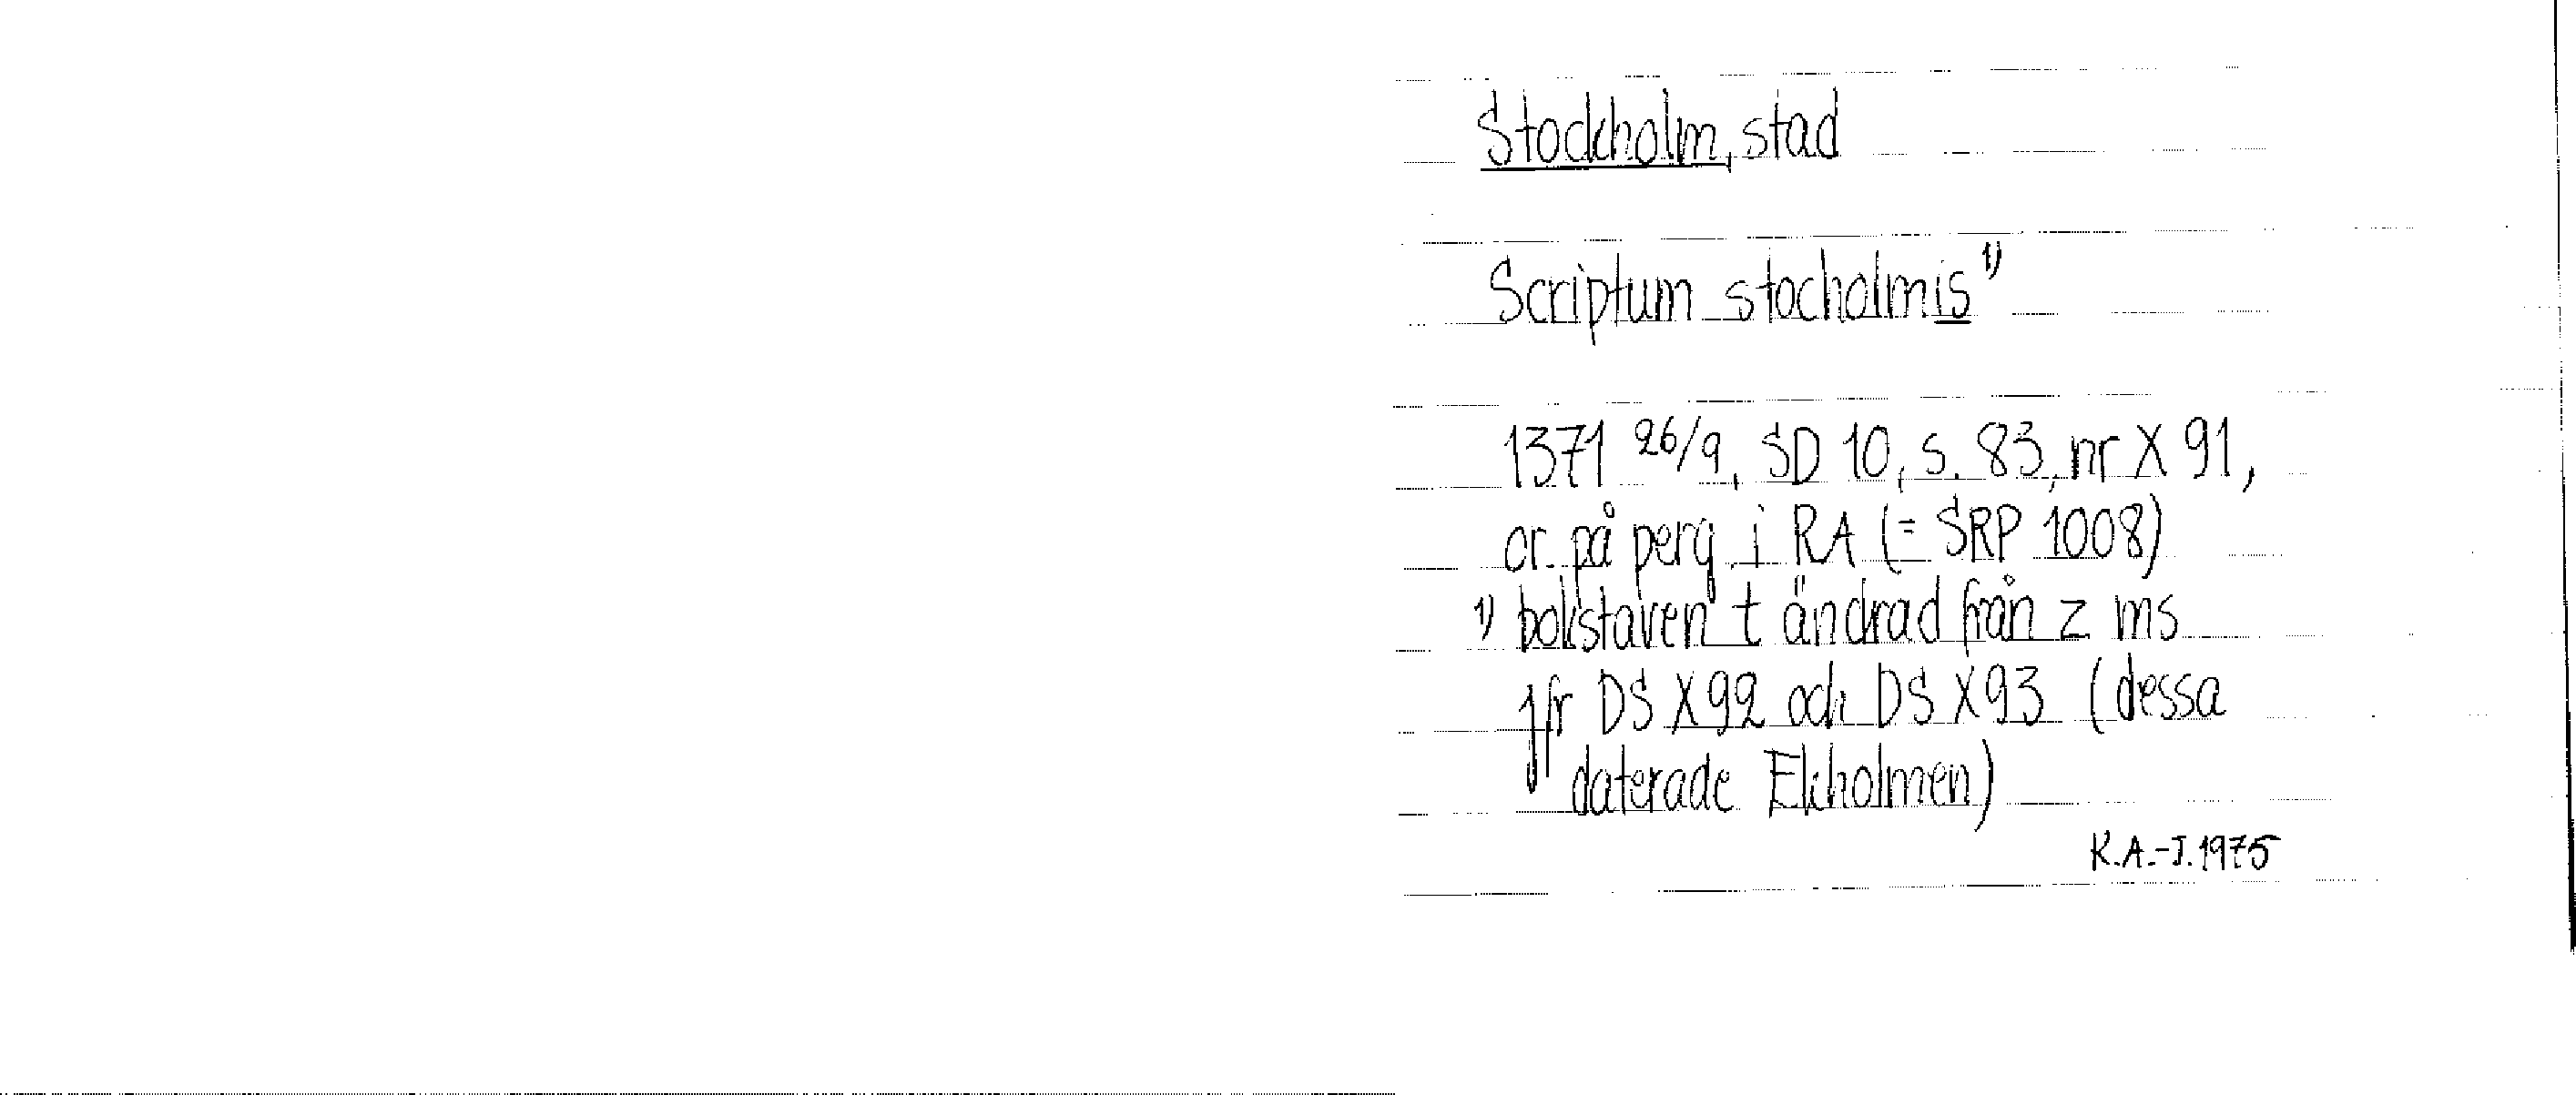 Stockholm, stad
Scriptum stocholmis 1)
1371 26/9, SD 10, s. 83, nr X 91,
or. på perg. i RA (= SRP 1008)
1) bokstaven t ändrad från z ms
jfr DS X92 och DS X93 (dessa
daterade Ekholmen)
K.A.-J. 1975